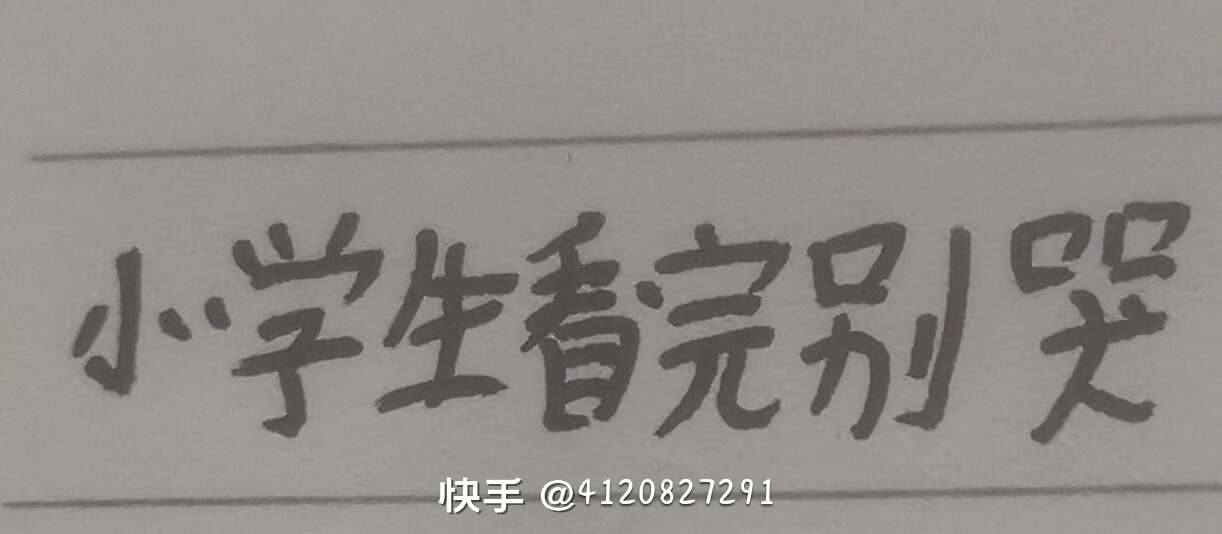 小学生看完别哭
快手 @4120827291